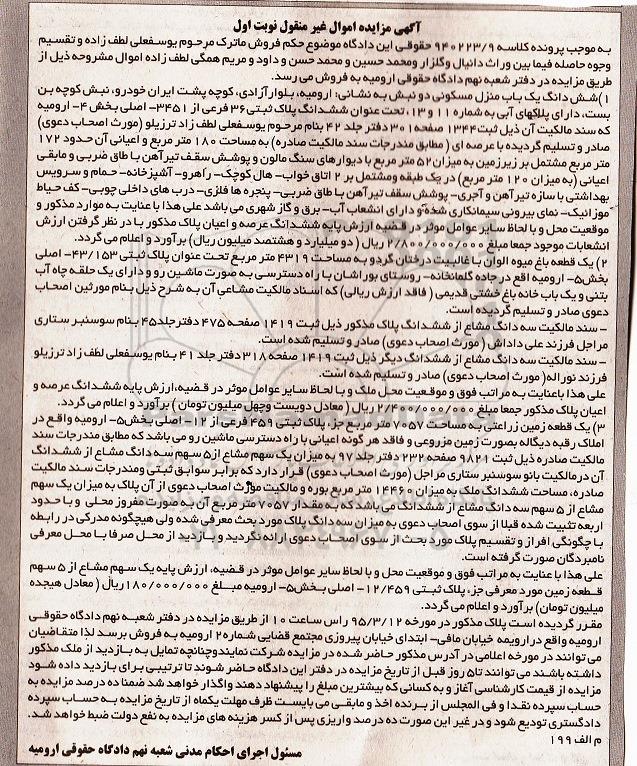 آگهی مزایده اموال غیر منقول نوبت اول
به موجب پرونده کلاسه ۹۴۰۲۲۳/۹ حقوقی این دادگاه موضوع حکم فروش ماترک مرحوم یوسفعلی لطف زاده و تقسیم
وجوه حاصله فیما بین وراث دانیال وگلزار ومحمد حسین و محمد حسن و داود و مریم همگی لطف زاده اموال مشروحه ذیل از
طریق مزایده در دفتر شعبه نهم دادگاه حقوقی ارومیه به فروش می رسد.
۱) شش دانگ یک باب منزل مسکونی دو نبش به نشانی: ارومیه، بلوار آزادی، کوچه پشت ایران خودرو، نبش کوچه بن
بست، دارای پلاکهای آبی به شماره ۱۱ و ۱۳، تحت عنوان ششدانگ پلاک ثبتی ۳۶ فرعی از ۳۴۵۱- اصلی بخش ۴- ارومیه
که سند مالکیت آن ذیل ثبت ۱۳۴۴ صفحه ۳۰۱ دفتر جلد ۴۲ بنام مرحوم یوسفعلی لطف زاد ترزیلو (مورث اصحاب دعوی)
صادر و تسلیم گردیده با عرصه ای (مطابق مندرجات سند مالکیت صادره) به مساحت ۱۸۰ متر مربع و اعیانی آن حدود ۱۷۲
متر مربع مشتمل بر زیرزمین به میزان ۵۲ متر مربع با دیوارهای سنگ مالون و پوشش سقف تیرآهن با طاق ضربی و مابقی
اعیانی (به میزان ۱۲۰ متر مربع) در یک طبقه و مشتمل بر ۲ اتاق خواب- هال کوچک- راهرو- آشپزخانه- حمام و سرویس
بهداشتی با سازه تیرآهن و آجری- پوشش سقف تیرآهن با طاق ضربی- پنجره ها فلزی- درب های داخلی چوبی- کف حیاط
موزائیک- نمای بیرونی سیمانکاری شده و دارای انشعاب آب- برق و گاز شهری می باشد علی هذا با عنایت به موارد مذکور و
موقعیت محل و با لحاظ سایر عوامل موثر در قضیه ارزش پایه ششدانگ عرصه و اعیان پلاک مذکور با در نظر گرفتن ارزش
انشعابات موجود جمعا مبلغ ۲/۸۰۰/۰۰۰/۰۰۰ ریال ( دو میلیارد و هشتصد میلیون ریال) برآورد و اعلام می گردد.
۲) یک قطعه باغ میوه الوان با غالبیت درختان گردو به مساحت ۴۳۱۹ متر مربع تحت عنوان پلاک ثبتی ۴۳/۱۵۳- اصلی
بخش۵- ارومیه واقع در جاده گلمانخانه- روستای بوراشان با راه دسترسی به صورت ماشین رو و دارای یک حلقه چاه آب
بتنی و یک باب خانه باغ خشتی قدیمی ( فاقد ارزش ریالی) که اسناد مالکیت مشاعی آن به شرح ذیل بنام مورثین اصحاب
دعوی صادر و تسلیم گردیده است.
- سند مالکیت سه دانگ مشاع از ششدانگ پلاک مذکور ذیل ثبت ۱۴۱۹ صفحه ۴۷۵ دفتر جلد۴۵ بنام سوسنبر ستاری
مراجل فرزند علی داداش ( مورث اصحاب دعوی) صادر و تسلیم شده است.
- سند مالکیت سه دانگ مشاع از ششدانگ دیگر ذیل ثبت ۱۴۱۹ صفحه ۳۱۸ دفتر جلد ۴۱ بنام یوسفعلی لطف زاد ترزیلو
فرزند نوراله( مورث اصحاب دعوی) صادر و تسلیم شده است.
علی هذا باعنایت به مراتب فوق و موقعیت محل ملک و با لحاظ سایر عوامل موثر در قضیه، ارزش پایه ششدانگ عرصه و
اعیان پلاک مذکور جمعا مبلغ ۲/۴۰۰/۰۰۰/۰۰۰ ریال ( معادل دویست وچهل میلیون تومان) برآورد و اعلام می گردد.
۳) یک قطعه زمین زراعتی به مساحت ۷۰۵۷ متر مربع جز، پلاک ثبتی ۴۵۹ فرعی از ۱۲- اصلی بخش۵- ارومیه واقع در
املاک رقبه دیگاله بصورت زمین مزروعی و فاقد هر گونه اعیانی با راه دسترسی ماشین رو می باشد که مطابق مندرجات سند
مالکیت صادره ذیل ثبت ۹۸۲۱ صفحه ۲۳۲ دفتر جلد ۹۷ به میزان یک سهم مشاع از۵ سهم سه دانگ مشاع از ششدانگ
آن در مالکیت بانو سوسنبر ستاری مراجل (مورث اصحاب دعوی) قرار دارد که برابر سوابق ثبتی ومندرجات سند مالکیت
صادره، مساحت ششدانگ ملک به میزان ۱۴۴۶۰ متر مربع بوره و مالکیت مورث اصحاب دعوی از آن پلاک به میزان یک سهم
مشاع از ۵ سهم سه دانگ مشاع از ششدانگ می باشد که به مقدار ۷۰۵۷ متر مربع آن به صورت مفروز محلی و با حدود
اربعه تثبیت شده قبلا از سوی اصحاب دعوی به میزان سه دانگ پلاک مورد بحث معرفی شده ولی هیچگونه مدرکی در رابطه
با چگونگی افراز و تقسیم پلاک مورد بحث از سوی اصحاب دعوی ارائه نگردید و بازدید از محل صرفا با محل معرفی
نامبردگان صورت گرفته است.
علی هذا با عنایت به مراتب فوق و موقعیت محل و با لحاظ سایر عوامل موثر در قضیه، ارزش پایه یک سهم مشاع از ۵ سهم
قطعه زمین مورد معرفی جز، پلاک ثبتی ۱۲/۴۵۹- اصلی بخش۵- ارومیه مبلغ ۱۸۰/۰۰۰/۰۰۰ ریال ( معادل هیجده
میلیون تومان) برآورد و اعلام می گردد.
مقرر گردیده است پلاک مذکور در مورخه ۹۵/۳/۱۲ راس ساعت ۱۰ از طریق مزایده در دفتر شعبه نهم دادگاه حقوقی
ارومیه واقع در ارومیه خیابان مافی- ابتدای خیابان پیروزی مجتمع قضایی شماره ۲ ارومیه به فروش برسد لذا متقاضیان
می توانند در مورخه اعلامی در آدرس مذکور حاضر شده در مزایده شرکت نمایند وچنانچه تمایل به بازدید از ملک مذکور
داشته باشند می توانند تا۵ روز قبل از تاریخ مزایده در دفتر این دادگاه حاضر شوند تا ترتیبی برای بازدید داده شود
مزایده از قیمت کارشناسی آغاز و به کسانی که بیشترین مبلغ را پیشنهاد دهند واگذار خواهد شد ضمنا ده درصد مزایده به
حساب سپرده نقدا و فی المجلس از برنده اخذ و مابقی می بایست ظرف مهلت یکماه از تاریخ مزایده به حساب سپرده
دادگستری تودیع شود و در غیر این صورت ده درصد واریزی پس از کسر هزینه های مزایده به نفع دولت ضبط خواهد شد.
م الف ۱۹۹
مسئول اجرای احکام مدنی شعبه نهم دادگاه حقوقی ارومیه